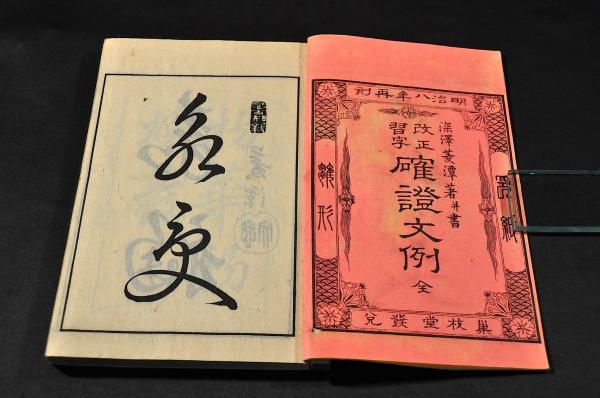 明治八年再刻
深澤菱潭著并書
改正
習字
確證文例 全
雛形
巢枝堂發兌
永受